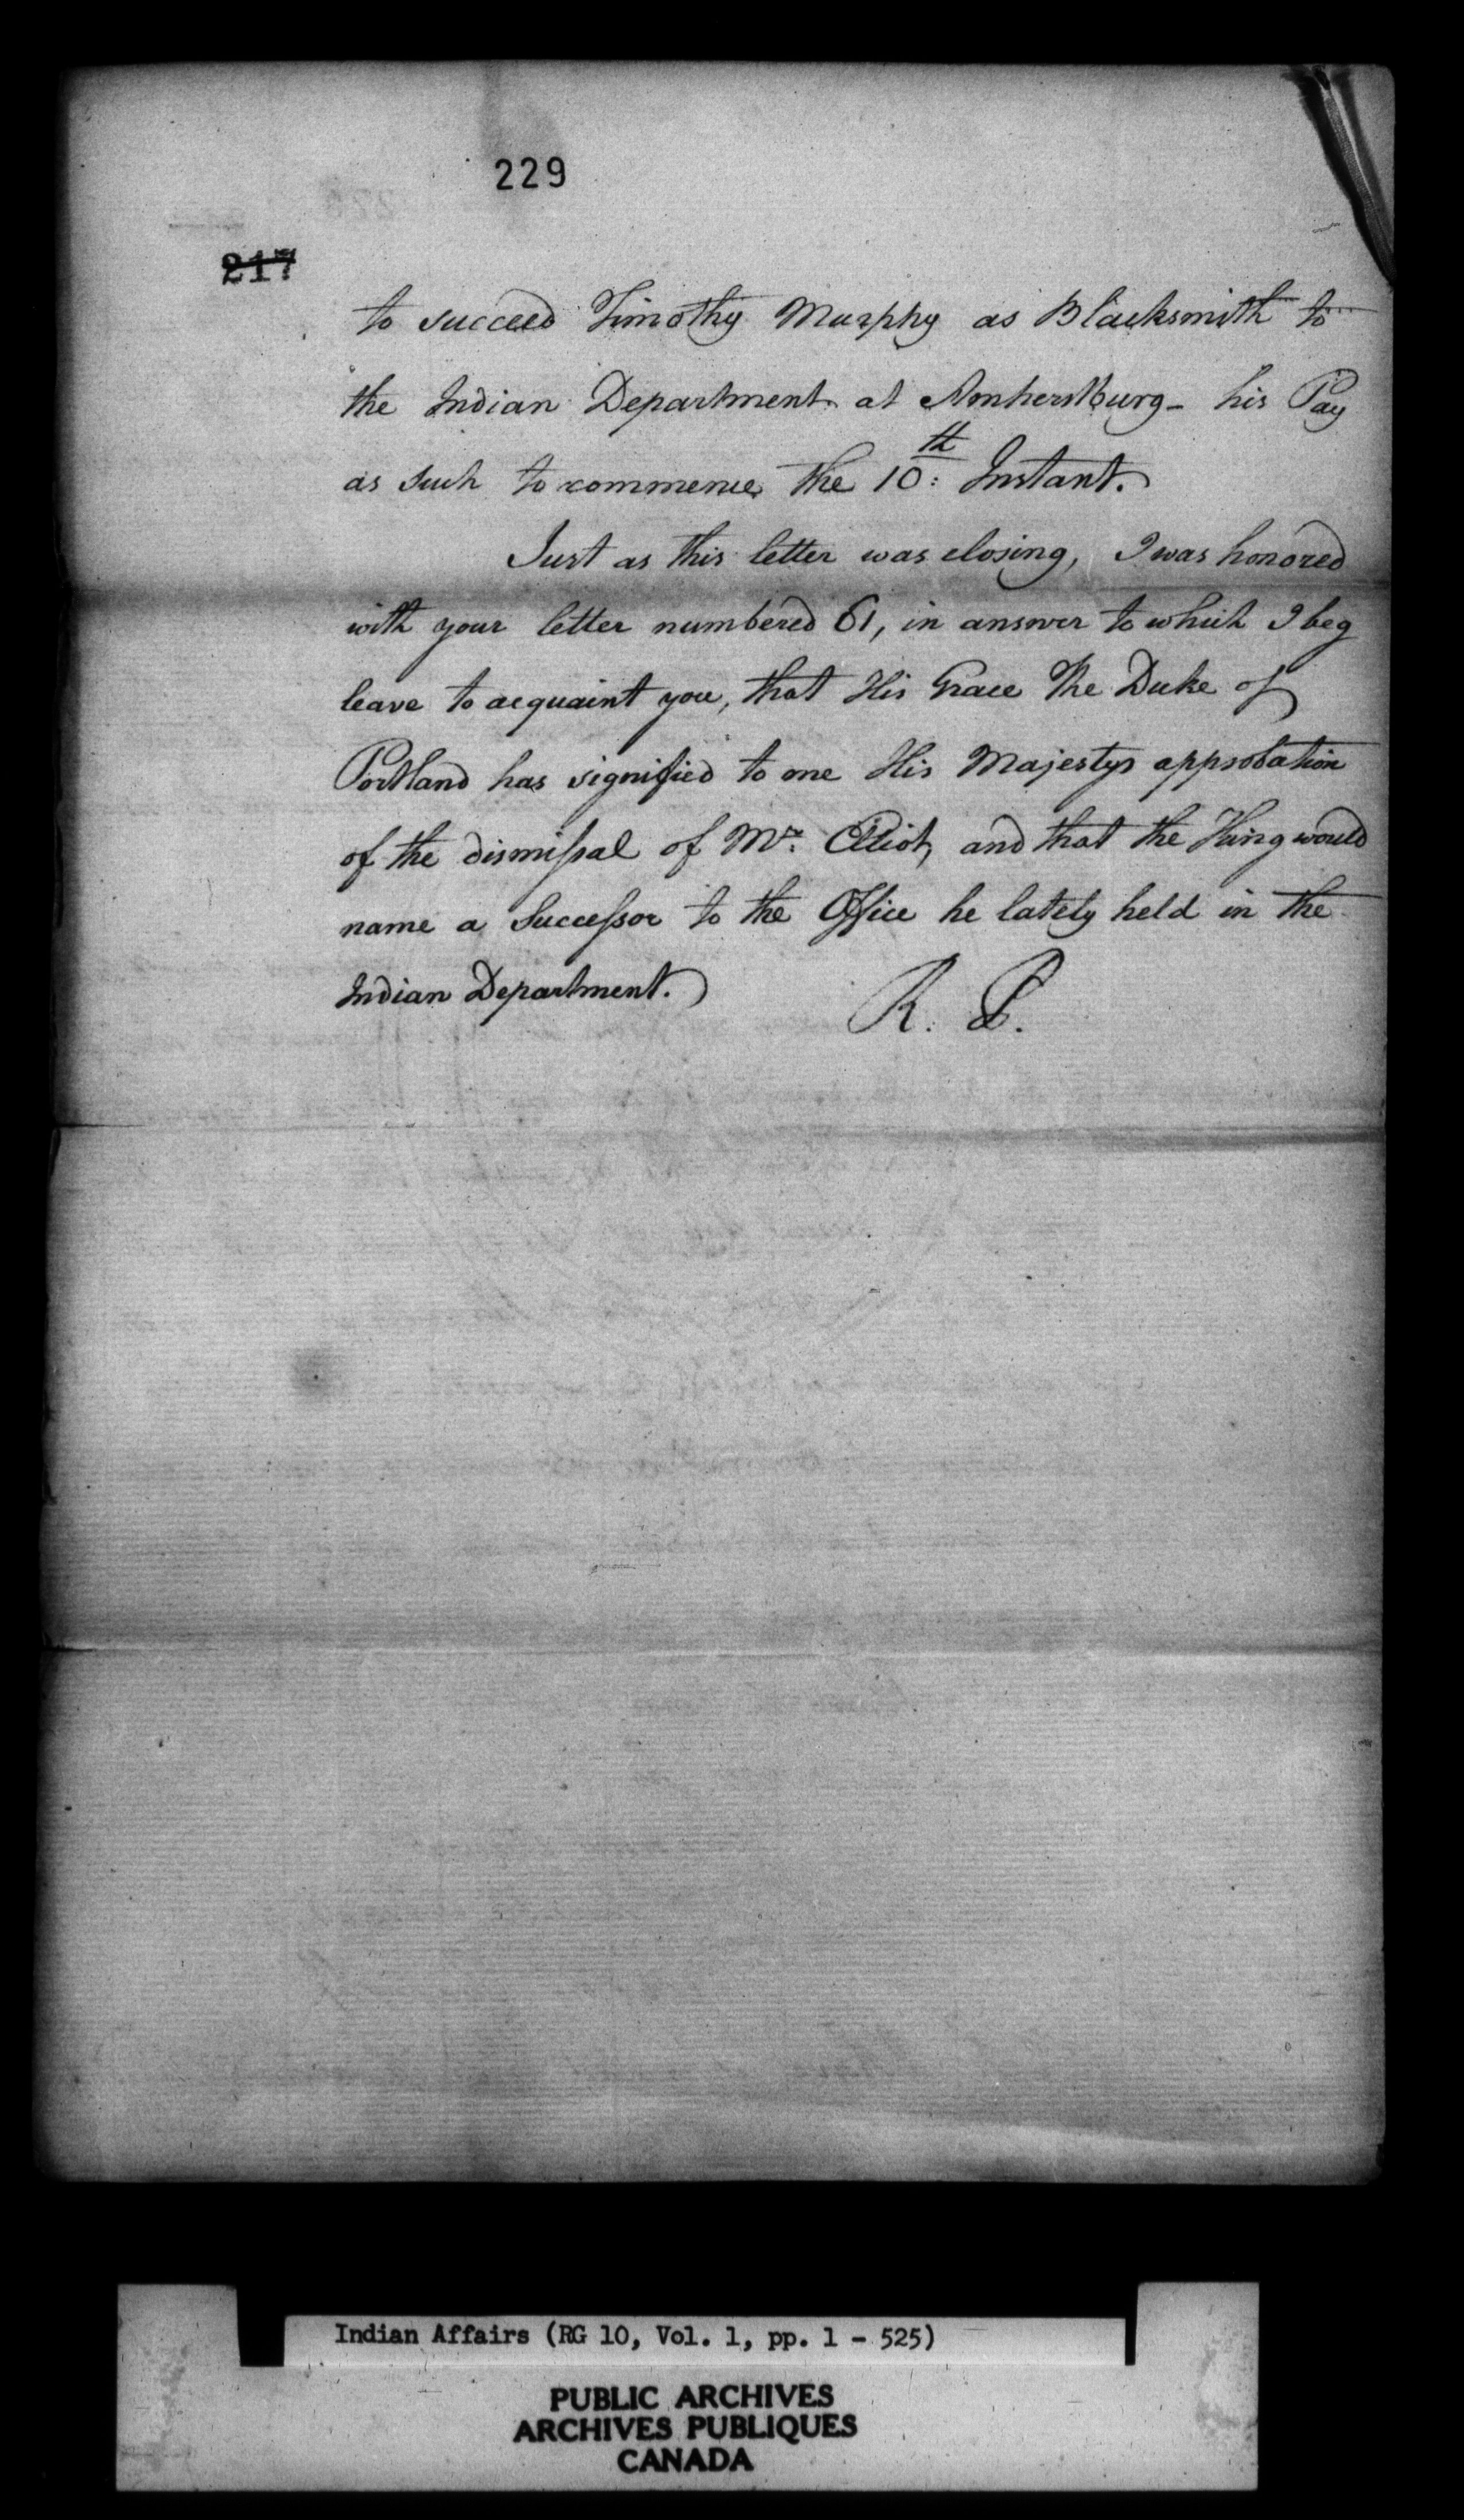 229
217
to succeed Timothy Murphy as Blacksmith to
the Indian Department at Amherstburg - his Pay
as such to commence the 10:th Instant.
Just as this letter was closing, I was honored
with your letter numbered 61, in answer to which I beg
leave to acquaint you, that His Grace The Duke of
Portland has signified to me His Majestys approbation
of the dismiſsal of Mr. Elliot, and that the King would
name a Succeſsor to the Office he lately held in the
Indian Department.
R. P.
Indian Affairs (RG 10, Vol. 1, pp. 1 - 525)
PUBLIC ARCHIVES
ARCHIVES PUBLIQUES
CANADA